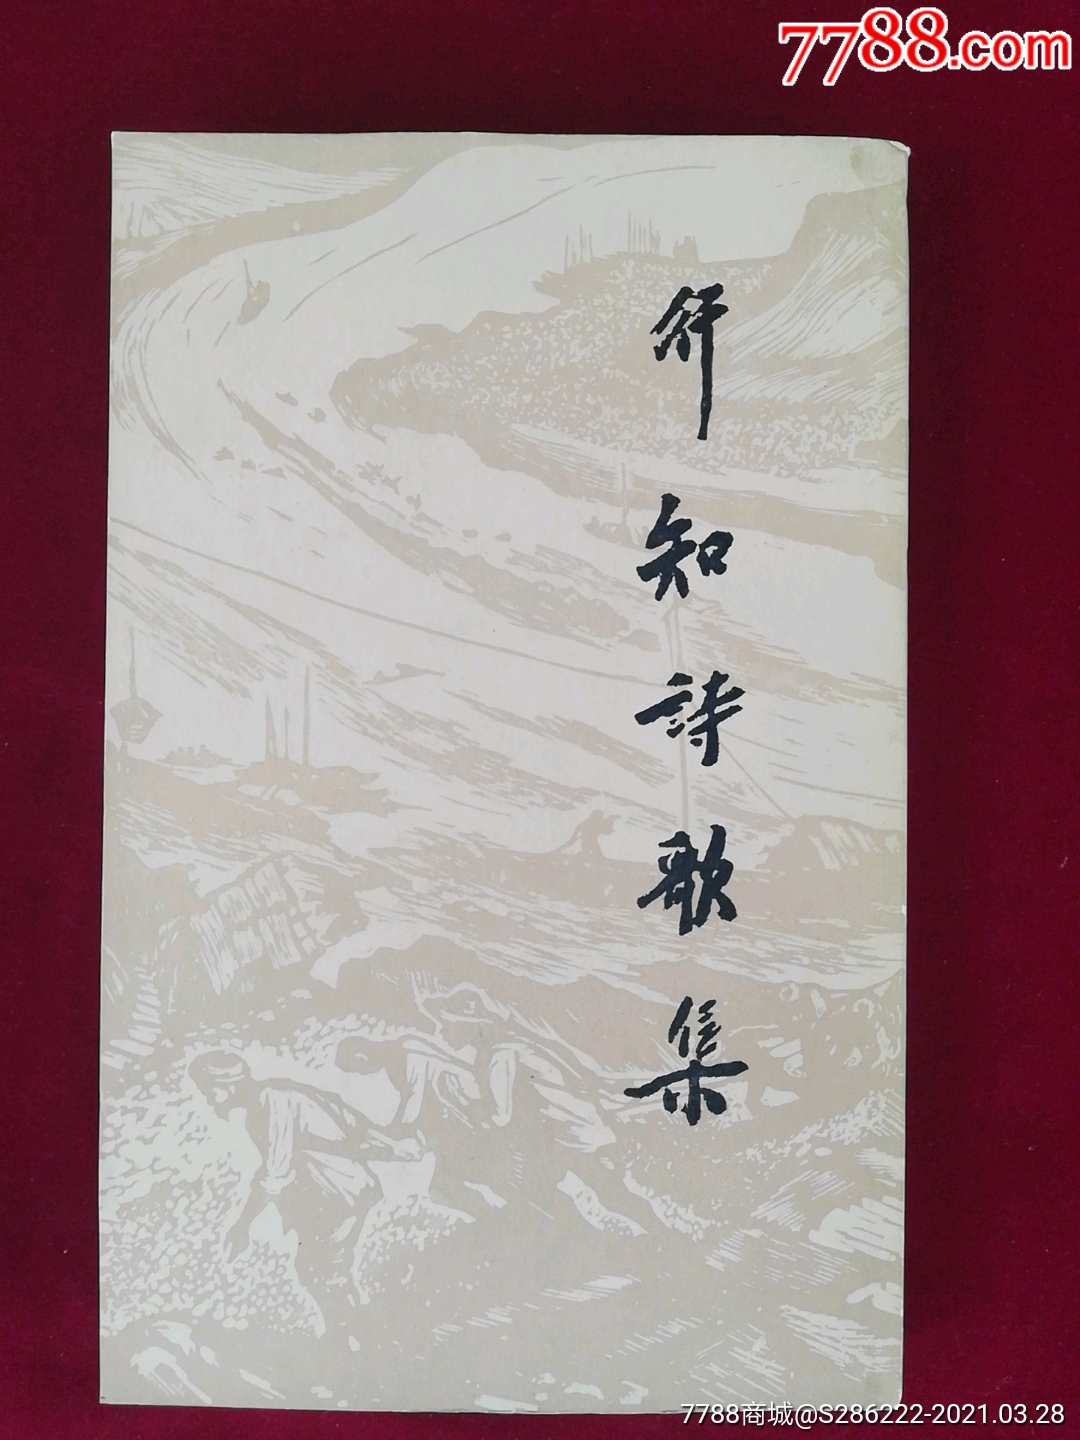 7788.com
行知詩歌集
7788商城@S286222-2021.03.28